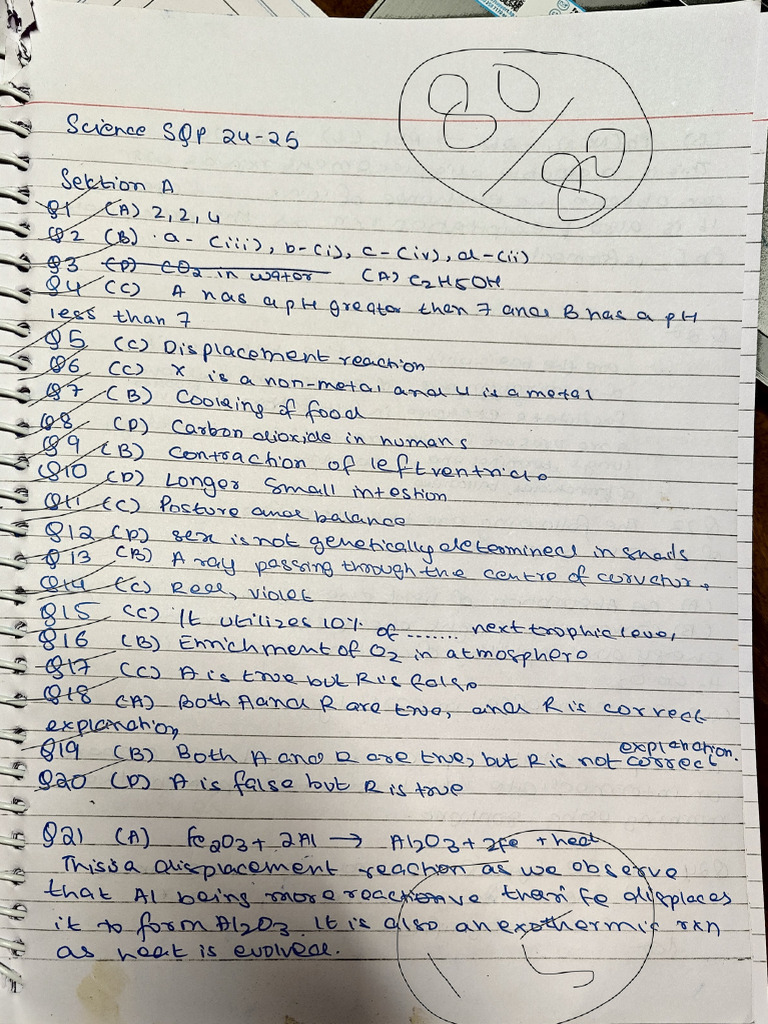 80/80
Science SQP 24-25
Section A
Q1 (A) 2, 2, 4
Q2 (B) a - (iii), b - (i), c - (iv), d - (ii)
Q3 (D) CO2 in water (A) C2H5OH
Q4 (C) A has a pH greater then 7 and B has a pH
less than 7
Q5 (C) Displacement reaction
Q6 (C) X is a non-metal and Y is a metal
Q7 (B) Cooking of food
Q8 (D) Carbon dioxide in humans
Q9 (B) Contraction of left ventricle
Q10 (D) Longer Small intestion
Q11 (C) Posture and balance
Q12 (D) Sex is not genetically determined in snails
Q13 (B) A ray passing through the centre of curvature
Q14 (C) Red, violet
Q15 (C) It utilizes 10% of ....... next trophic level
Q16 (B) Enrichment of O2 in atmosphere
Q17 (C) A is true but R is false
Q18 (A) Both A and R are true, and R is correct
explanation
Q19 (B) Both A and R are true, but R is not correct explanation.
Q20 (D) A is false but R is true
Q21 (A) Fe2O3 + 2Al → Al2O3 + 2Fe + heat
This is a displacement reaction as we observe
that Al being more reactive than Fe displaces
it to form Al2O3. It is also an exothermic rxn
as heat is evolved.